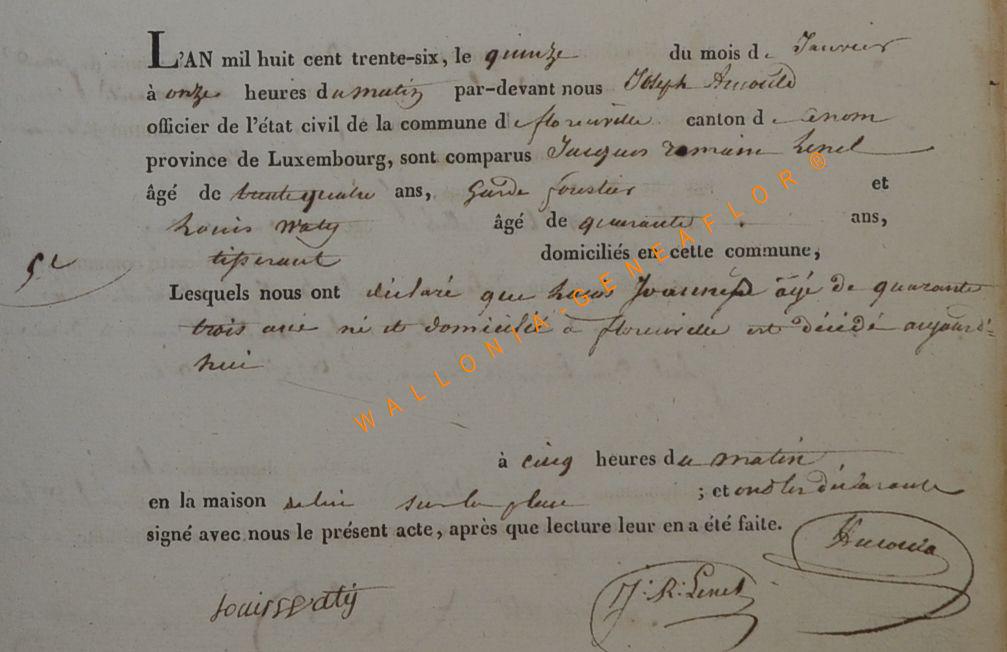 L'AN mil huit cent trente-six, le quinze du mois de Janvier
à onze heures du matin par-devant nous Joseph Arnould
officier de l'état civil de la commune de florenville canton de
province de Luxembourg, sont comparus Jacques romain Lenel
âgé de trente quatre ans, Garde forestier et
Louis Waty âgé de quarante ans,
tisserant domiciliés en cette commune,
5e
Lesquels nous ont déclaré que Louis âgé de quarante
trois ans né et domicilié à florenville est décédé aujourd'
hui
à cinq heures du matin
en la maison de lui sur la place ; et ont les déclarants
signé avec nous le présent acte, après que lecture leur en a été faite.
louis waty
J. R. Lenel
WALLONIA-GENEAFLOR®